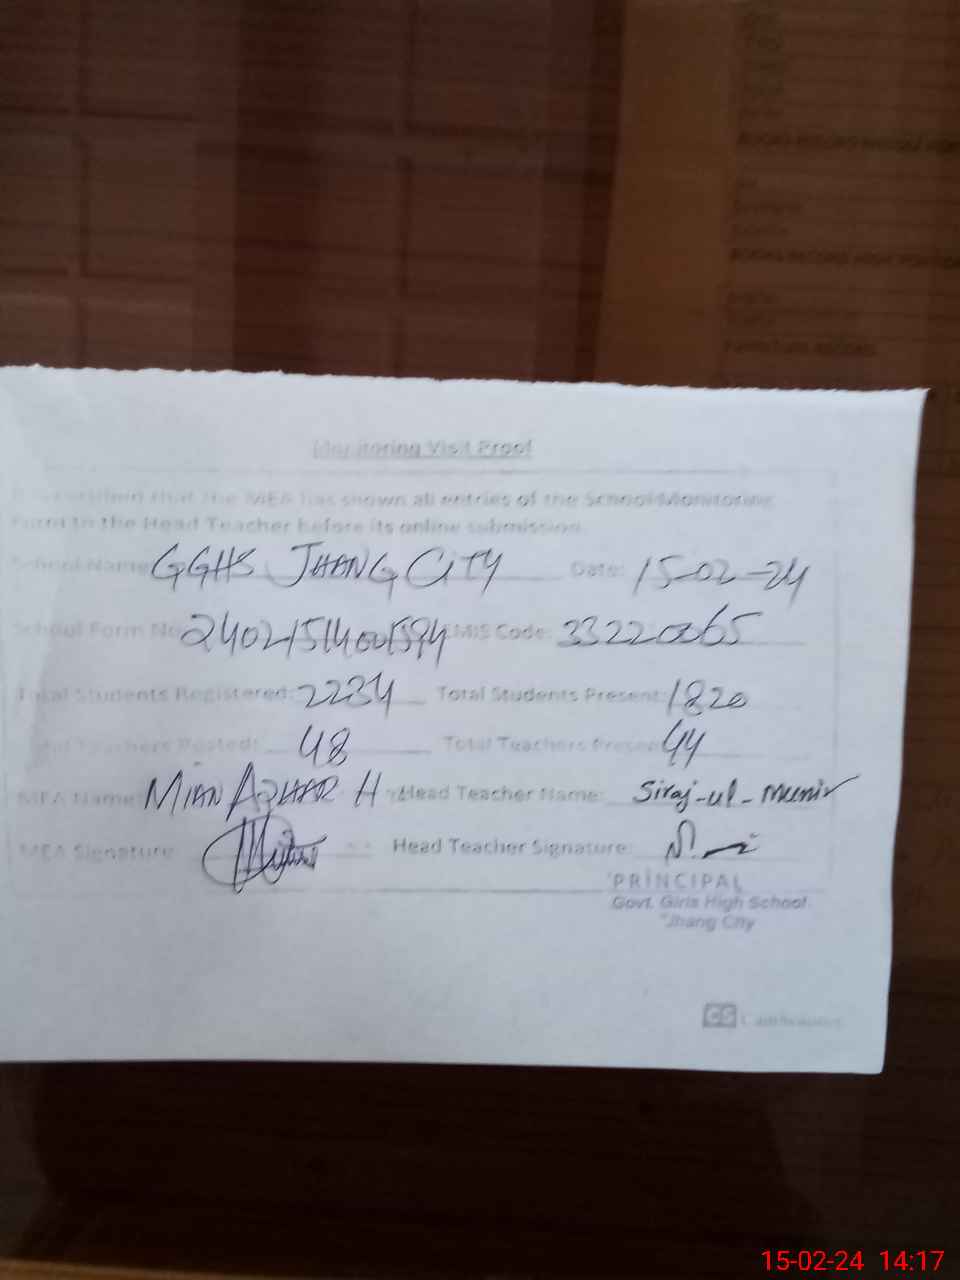 Monitoring Visit Proof
that the MEA has shown all entries of the School Monitoring
Form to the Head Teacher before its online submission.
School Name: GGHS JHANG CITY Date: 15-02-24
School Form No: EMIS Code: 33220065
Total Students Registered: 2234 Total Students Present: 1820
Total Teachers Posted: 48 Total Teachers Present: 44
MEA Name: MIAN AZHAR H Head Teacher Name: Siraj-ul-Munir
MEA Signature: Head Teacher Signature:
PRINCIPAL
Govt. Girls High School
Jhang City
CS CamScanner
15-02-24 14:17